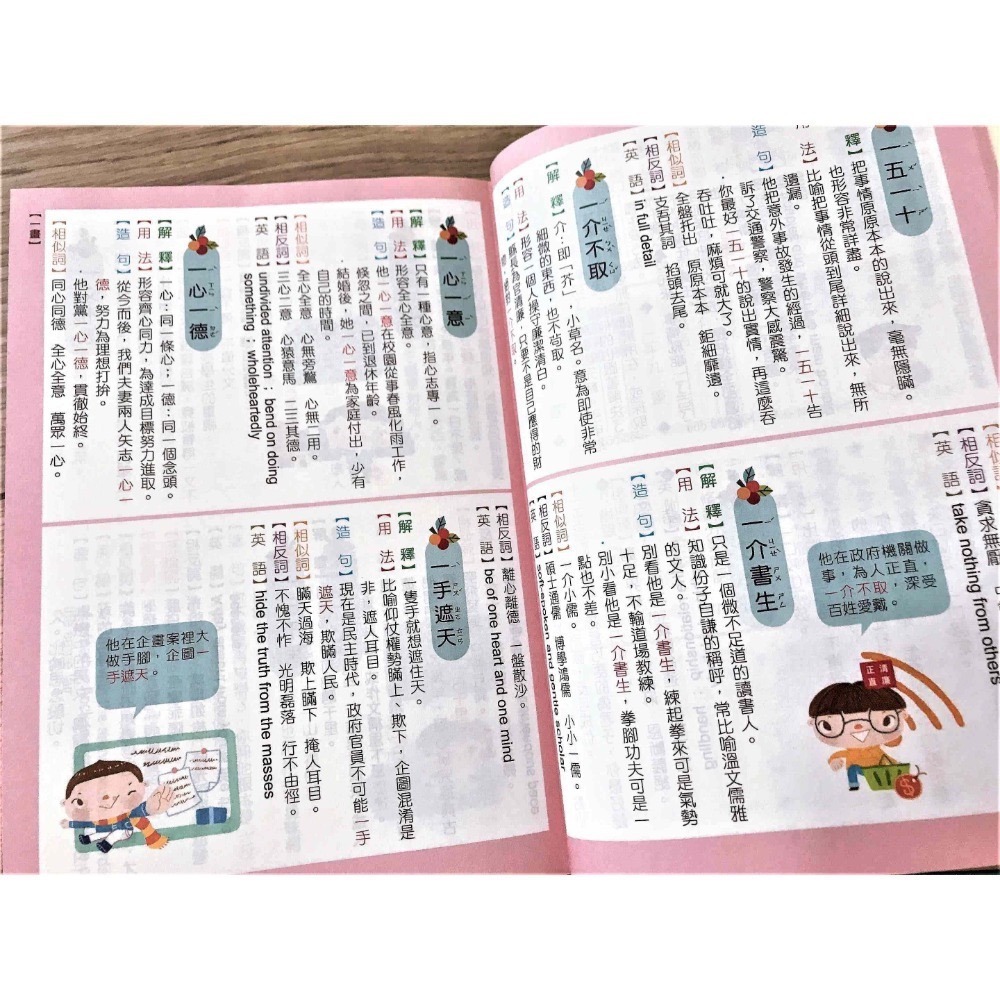 一五一十
釋】把事情原原本本的說出來，毫無隱瞞。
也形容非常詳盡。
用 法】比喻把事情從頭到尾詳細說出來，無所
遺漏。
造 句】他把意外事故發生的經過，一五一十告
訴了交通警察，警察大感震驚。
你最好一五一十的說出實情，再這麼吞
吞吐吐，麻煩可就大了。
【相似詞】全盤托出 原原本本 鉅細靡遺。
【相反詞】支吾其詞 掐頭去尾。
【英 語】in full detail
一介不取
【解 釋】介，即「芥」，小草名。意為即使非常
細微的東西，也不苟取。
【用 法】形容一個人操守廉潔清白。
【相似詞】
【相反詞】貪求無厭
【英 語】take nothing from others
他在政府機關做
事，為人正直，
一介不取，深受
百姓愛戴。
清廉
正直
一介書生
【解 釋】只是一個微不足道的讀書人。
【用 法】知識份子自謙的稱呼，常比喻溫文儒雅
的文人。
【造 句】別看他是一介書生，練起拳來可是氣勢
十足，不輸道場教練。
別小看他是一介書生，拳腳功夫可是一
點也不差。
【相似詞】一介小儒 小小一儒。
【相反詞】碩士通儒 博學鴻儒
【英 語】soft-spoken and gentle scholar
一心一意
【解 釋】只有一種心意，指心志專一。
【用 法】形容全心全意。
【造 句】他一心一意在校園從事春風化雨工作，
倏忽之間，已到退休年齡。
結婚後，她一心一意為家庭付出，少有
自己的時間。
【相似詞】全心全意 心無旁騖 心無二用。
【相反詞】三心二意 心猿意馬 二三其德。
【英 語】undivided attention；bend on doing
something；wholeheartedly
一心一德
【解 釋】一心：同一條心；一德：同一個念頭。
【用 法】形容齊心同力，為達成目標努力進取。
【造 句】從今而後，我們夫妻兩人矢志一心一
德，努力為理想打拚。
他對黨一心一德，貫徹始終。
【相似詞】同心同德 全心全意 萬眾一心。
【一畫】
【相反詞】離心離德 一盤散沙。
【英 語】be of one heart and one mind
一手遮天
【解 釋】一隻手就想遮住天。
【用 法】比喻仰仗權勢瞞上、欺下，企圖混淆是
非，遮人耳目。
【造 句】現在是民主時代，政府官員不可能一手
遮天，欺瞞人民。
【相似詞】瞞天過海 欺上瞞下 掩人耳目。
【相反詞】不愧不怍 光明磊落 行不由徑。
【英 語】hide the truth from the masses
他在企畫案裡大
做手腳，企圖一
手遮天。